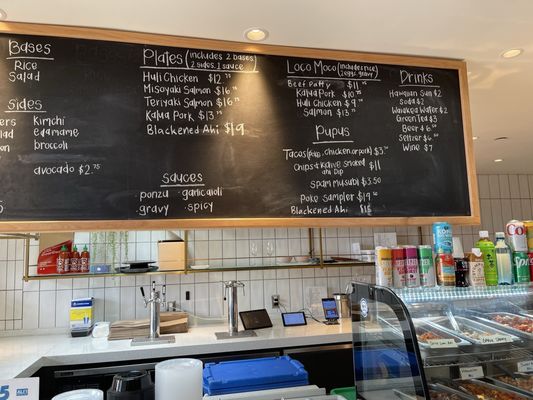 Bases
Rice
Salad
Sides
Kimchi
edamame
broccoli
avocado $2.75
Plates (includes 2 bases
2 sides, 1 sauce
Huli Chicken $12
Misoyaki Salmon $16
Teriyaki Salmon $16
Kalua Pork $13
Blackened Ahi $19
Sauces
ponzu garlicaioli
gravy spicy
Loco Moco (includes rice
2 eggs, gravy)
Beef Patty $11
Kalua Pork $10
Huli Chicken $9
Salmon $13
Pupus
Tacos (chicken or pork) $3
Chips + Kahve smoked $11
ahi Dip
spam musubi $3.50
Poke Sampler $19
Blackened Ahi $15
Drinks
Hawaiian Sun $2
Soda $2
Waiakea Water $2
Green Tea $3
Beer $6
Seltzer $6
Wine $7